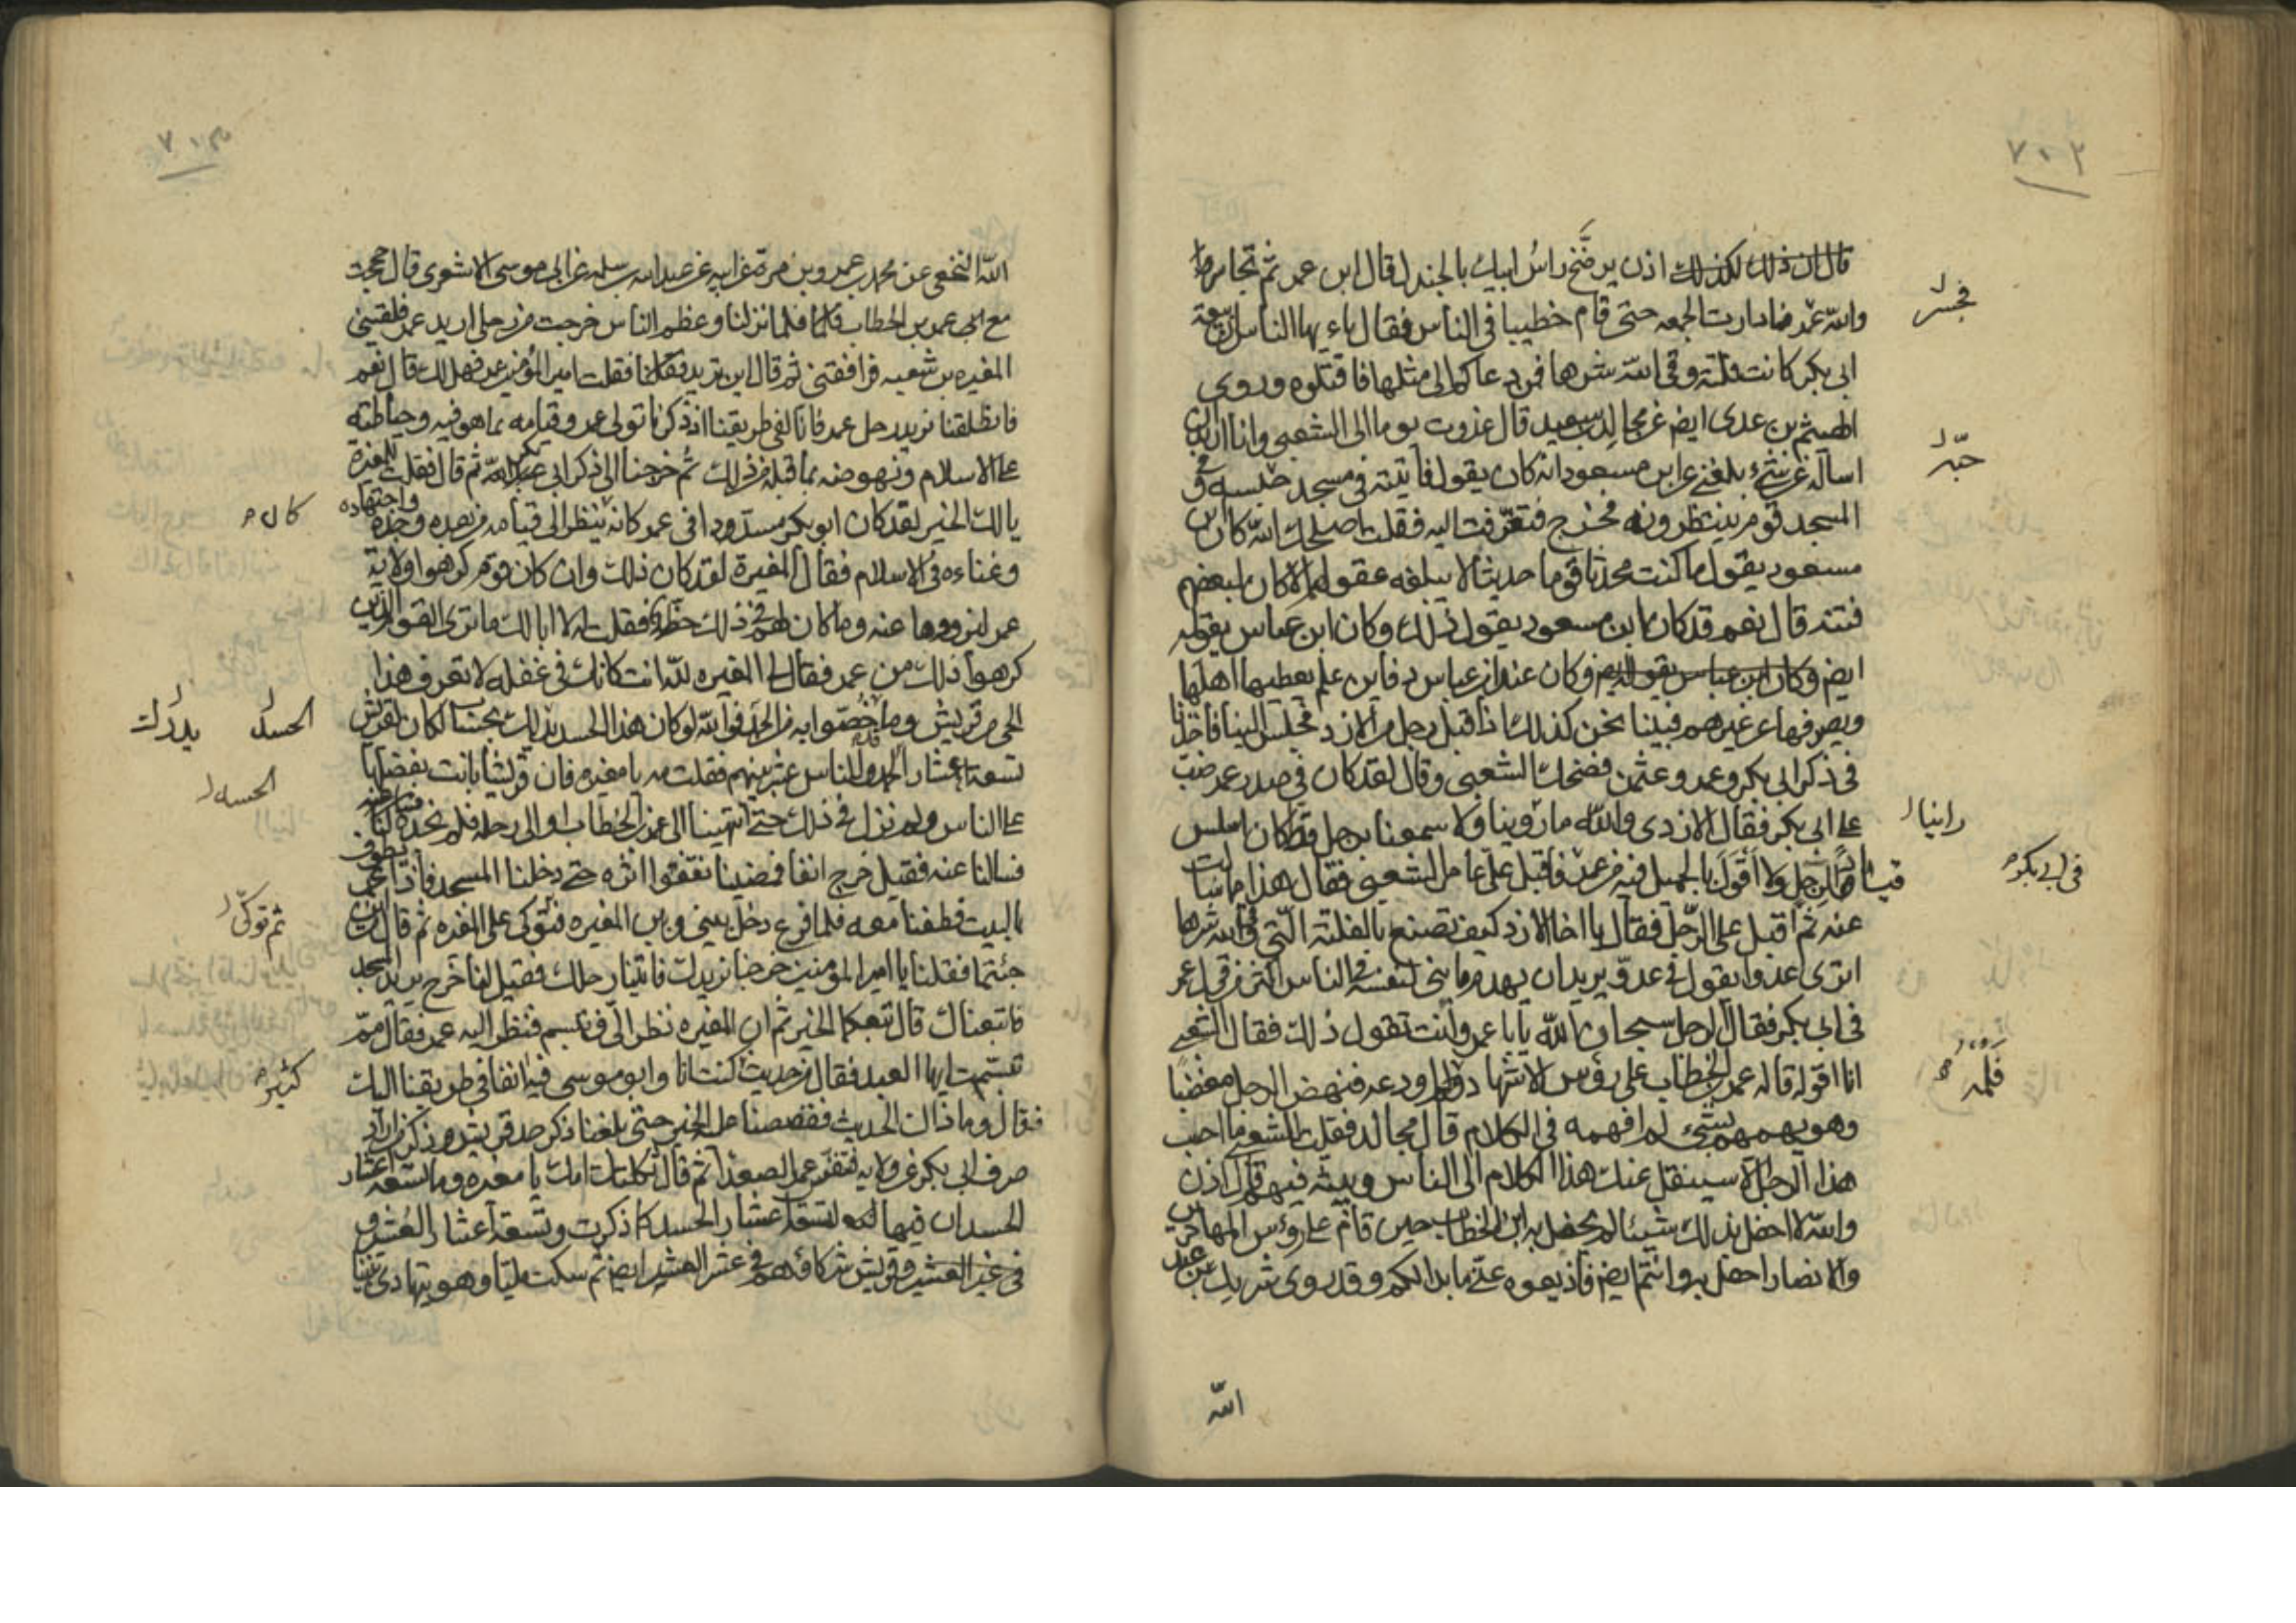 ٧٠٢
قال ان ذلك لكذلك اذن يرضخ راس ابيك بالجندل قال ابن عمر ثم تجاسر
والله عمر فما دارت الجمعه حتى قام خطيبا في الناس فقال يا ايها الناس ان بيعة
ابى بكر كانت فلتة وقى الله شرها فمن دعاكم الى مثلها فاقتلوه وروى
الهيثم بن عدى ايض عن مجالد بن سعيد قال غزوت يوما الى الشعبى وانا اريد ان
اساله عن شئ بلغنى عن ابن مسعود انه كان يقول فاتيته في مسجد وفى
المسجد قوم ينتظرونه فخرج فتعرفت اليه فقلت اصلحك الله كان ابن
مسعود يقول ما كنت محدثا قوما حديثا لا يبلغه عقولهم الا كان لبعضهم
فتنة قال نعم قد كان ابن مسعود يقول ذلك وكان ابن عباس يقوله
ايض وكان ابن عباس يقول ايض وكان عند ابن عباس دفاين علم يعطيها اهلها
ويصرفها عن غيرهم فبينا نحن كذلك اذ اقبل رجل من الازد فجلس الينا فاخذنا
في ذكر ابى بكر وعمر وعثمن فضحك الشعبى وقال لقد كان في صدر عمر ضب
على ابى بكر فقال الازدى والله ما روينا ولا سمعنا برجل قط كان اسلس
قيادا لرجل ولا اقول بالجميل فيه من عمر فاقبل على عامر الشعبى فقال هذا مما سالت
عنه ثم اقبل على الرجل فقال يا اخا الازد كيف تصنع بالفلتة التى وقى الله شرها
اترى عدوا يقول في عدو يريد ان يهدم ما بنى لنفسه في الناس اكثر من قول عمر
في ابى بكر فقال الرجل سبحان الله يا با عمرو انت تقول ذلك فقال الشعبى
انا اقوله قاله عمر بن الخطاب على رؤس الاشهاد فلمه او دعه فنهض الرجل مغضبا
وهو يهمهم بشئ لم افهمه في الكلام قال مجالد فقلت للشعبى ما احسب
هذا الرجل الا سينقل عنك هذا الكلام الى الناس ويبثه فيهم قال اذن
والله لا احفل بذلك شيئا لم يحفل به ابن الخطاب حين قام على رؤس المهاجرين
والانصار احفل به وانتم ايض فاذيعوه عنى ما بدا لكم وقد روى شريك بن عبد
الله
حبر
رانيا
في ابى بكر
فلمه
٧٠٣
الله النخعى عن محمد بن عمرو بن مرة عن ابيه عن عبد الله بن سلمه عن ابى موسى الاشعرى قال حججت
مع عمر بن الخطاب فلما نزلنا وعظم الناس خرجت من رحلى اريد عمر فلقينى
المغيره بن شعبه فرافقنى ثم قال اين تريد فقلت امير المؤمنين عمر فهل لك قال نعم
فانطلقنا نريد رحل عمر فانا لفى طريقنا اذ ذكرنا تولى عمر وقيامه بما هو فيه وحياطته
على الاسلام ونهوضه بما قبله من ذلك ثم خرجنا الى ذكر ابى بكر ثم قال فقلت للمغيرة
يا لك الخير لقد كان ابو بكر مسددا في عمر كانه ينظر الى قيامه من بعده وجده واجتهاده
وغناءه في الاسلام فقال المغيرة لقد كان ذلك وان كان قوم كرهوا ولاية
عمر ليزووها عنه وما كان لهم في ذلك حظ فقلت له لا ابا لك ما ترى القوم الذين
كرهوا ذلك من عمر فقال لى المغيره لله انت كانك في غفله لا تعرف هذا
الحى من قريش وما خصوا به من الحسد فوالله لو كان هذا الحسد يدرك بحساب لكان لقريش
تسعة اعشار الحسد وللناس عشر بينهم فقلت مه يا مغيره فان قريشا بانت بفضلها
على الناس ولم نزل في ذلك حتى انتهينا الى عمر بن الخطاب او الى رحله فلم نجده
فسالنا عنه فقيل خرج انفا فمضينا نقفوا اثره حتى دخلنا المسجد فاذا عمر يطوف
بالبيت فطفنا معه فلما فرغ دخل بينى وبين المغيره فتوكى على المغيره ثم قال من اين
جئتما فقلنا يا امير المؤمنين خرجنا نريدك فاتينا رحلك فقيل لنا خرج يريد المسجد
فاتبعناك قال تبعكما الخير ثم ان المغيره نظر الى فتبسم فنظر اليه عمر فقال مم
تبسمت ايها العبد فقال من حديث كنت انا وابو موسى فيه انفا في طريقنا اليك
فقال وما ذاك الحديث فقصصنا عليه الخبر حتى بلغنا ذكر حسد قريش وذكر من اراد
صرف ابى بكر عن ولايه فتنفس عمر الصعدا ثم قال ثكلتك امك يا مغيره وما تسعة اعشار
الحسد ان فيها لتسعة اعشار الحسد كما ذكرت وتسعة اعشار العشر و
في العشر وقريش شركاؤهم في عشر العشر ايض ثم سكت مليا وهو يتهادى بيننا
كان
الحسد يدرك
الحسد
ثم توكى